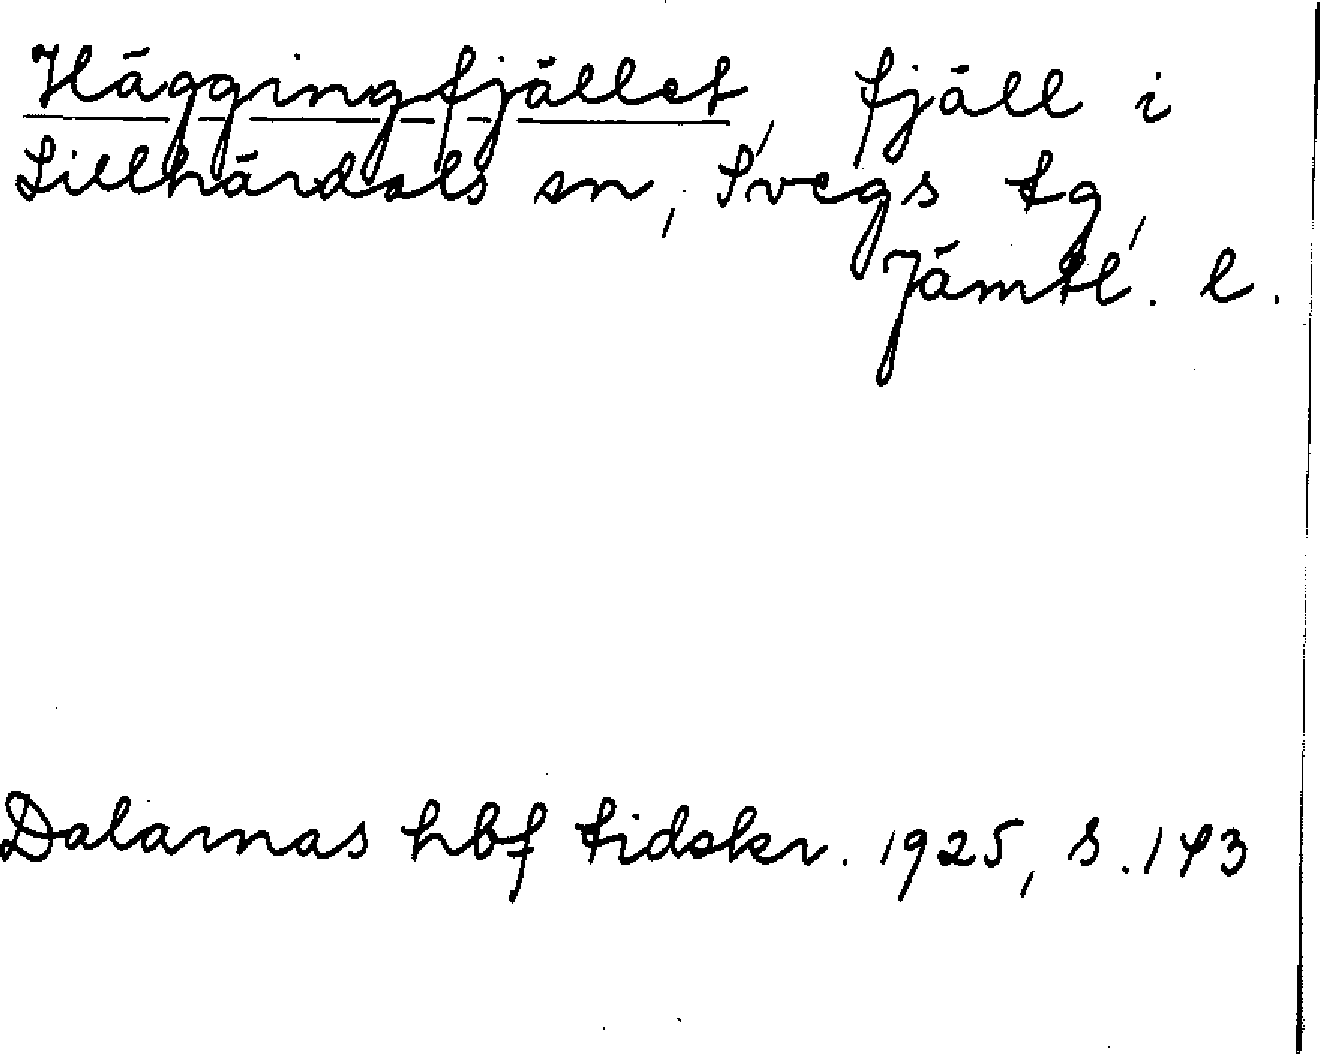 Häggingfjället, fjäll i
Lillhärdals sn, Svegs tg,
Jämtl. l.
Dalarnas hbf tidskr. 1925, s. 143